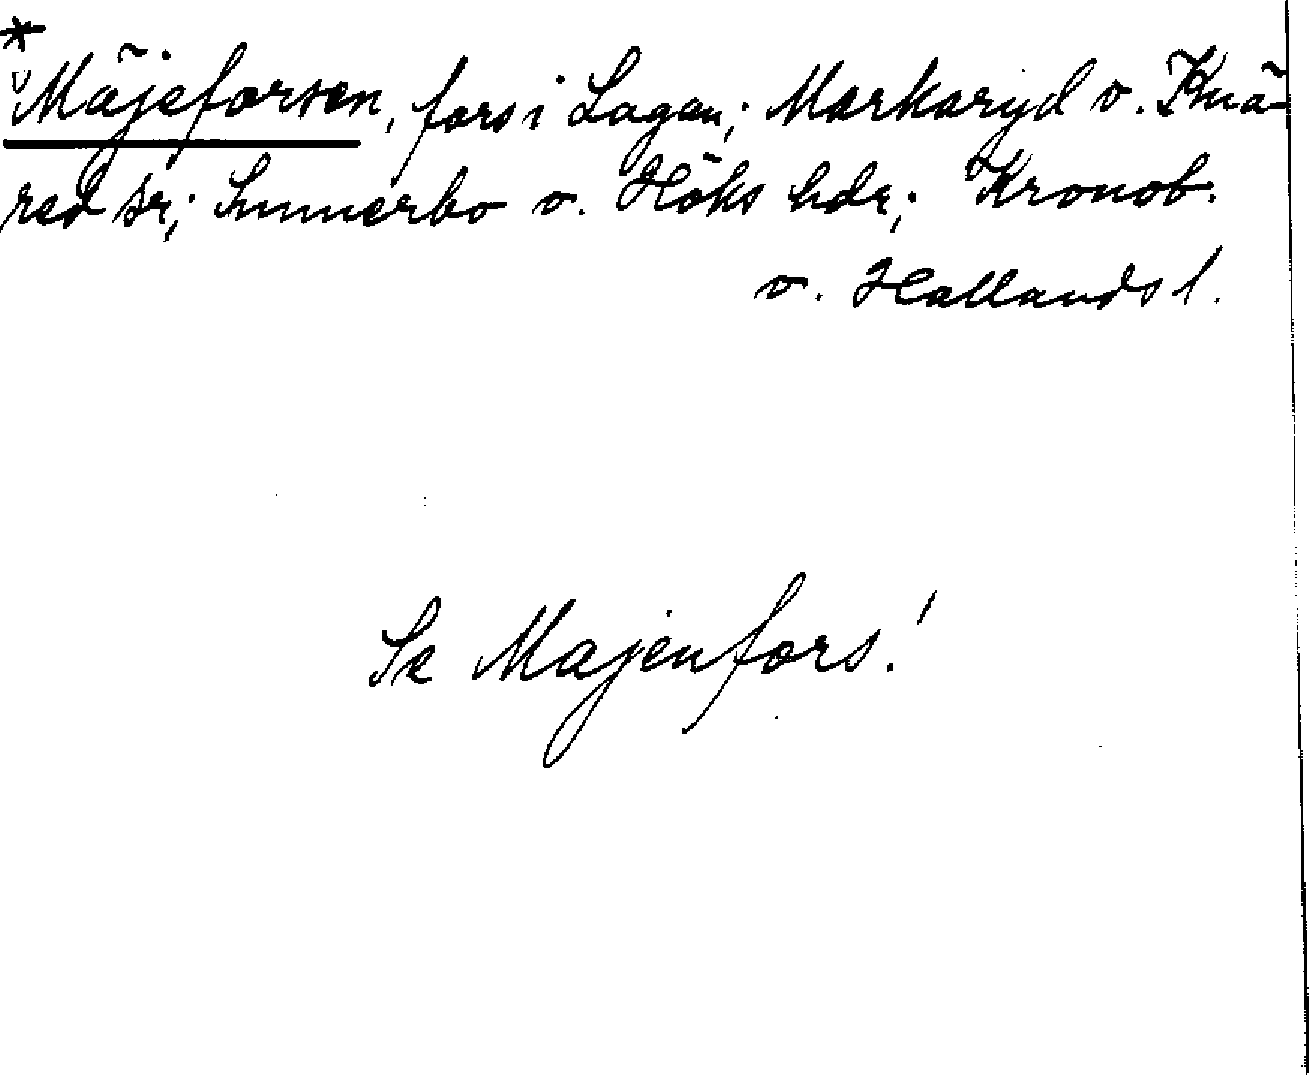 *
Mäjeforsen, fors i Lagan; Markaryd o. Knä-
red sr; Sunnerbo o. Höks hdr; Kronob.
o. Hallands l.
Se Majenfors!